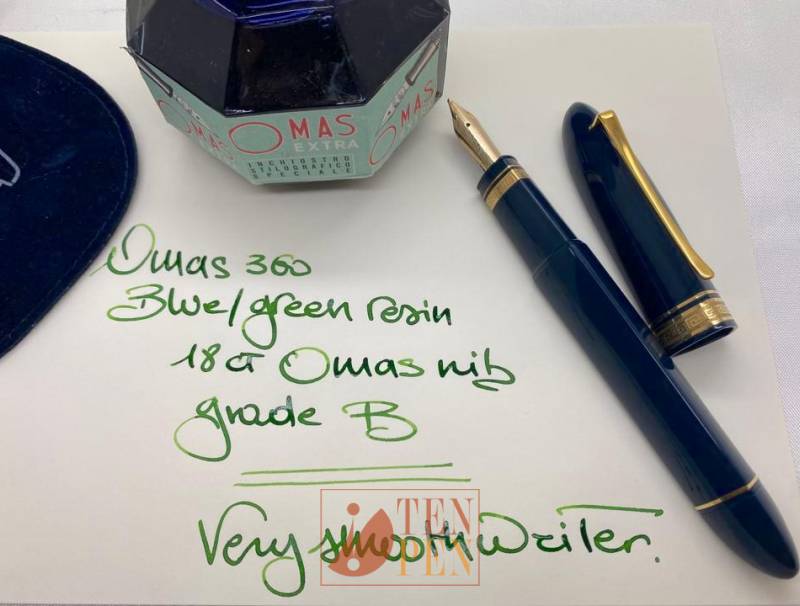 OMAS
EXTRA
INCHIOSTRO
STILOGRAFICO
SPECIALE
Omas 360
Blue/green resin
18 ct Omas nib
grade B
Very smooth writer.
TEN
PEN